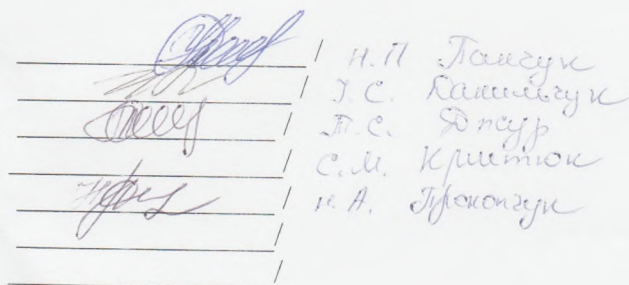 / Н.П Панчук
/ І.С. Данильчук
/ Т.С. Джур
/ С.М. Криштюк
/ Н.А. Прокопчук
/
/